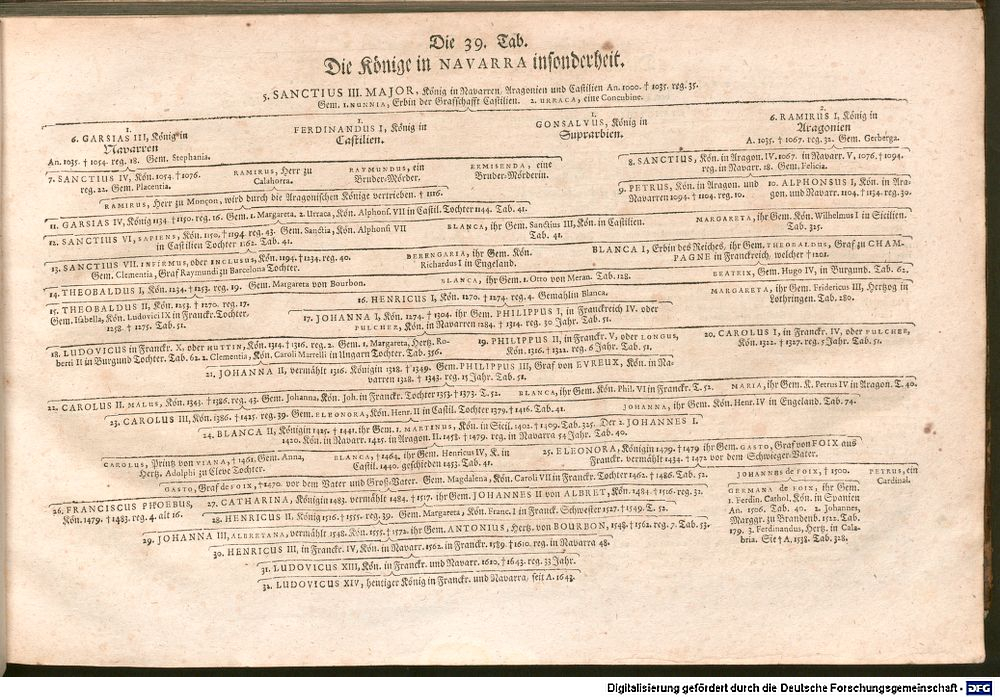 Die 39. Tab.
Die Könige in NAVARRA insonderheit.
5. SANCTIUS III. MAJOR, König in Navarren, Aragonien und Castilien An. 1000. † 1035. reg. 35.
Gem. 1. NUNNIA, Erbin der Grafschafft Castilien. 2. URRACA, eine Concubine.
1.
6. GARSIAS III, König in
Navarren
An. 1035. † 1054. reg. 18. Gem. Stephania.
1.
FERDINANDUS I, König in
Castilien.
1.
GONSALVUS, König in
Suprarbien.
2.
6. RAMIRUS I, König in
Aragonien
A. 1035. † 1067. reg. 32. Gem. Gerberga.
7. SANCTIUS IV, Kön. 1054. † 1076.
reg. 22. Gem. Placentia.
RAMIRUS, Herr zu
Calahorra.
RAYMUNDUS, ein
Bruder-Mörder.
ERMISENDA, eine
Bruder-Mörderin.
8. SANCTIUS, Kön. in Aragon. IV. 1067. in Navarr. V, 1076. † 1094.
reg. in Navarr. 18. Gem. Felicia.
RAMIRUS, Herr zu Monçon, wird durch die Aragonischen Könige vertrieben. † 1116.
9. PETRUS, Kön. in Aragon. und
Navarren 1094. † 1104. reg. 10.
10. ALPHONSUS I, Kön. in Ara-
gon. und Navarr. 1104. † 1134. reg. 30.
11. GARSIAS IV, König 1134. † 1150. reg. 16. Gem. 1. Margareta, 2. Urraca, Kön. Alphonf. VII in Castil. Tochter 1144. Tab. 41.
12. SANCTIUS VI, SAPIENS, Kön. 1150. † 1194. reg. 43. Gem. Sanctia, Kön. Alphonsi VII
in Castilien Tochter 1162. Tab. 41.
BLANCA, ihr Gem. Sanctius III, Kön. in Castilien.
Tab. 41.
MARGARETA, ihr Gem. Kön. Wilhelmus I in Sicilien.
Tab. 325.
13. SANCTIUS VII. INFIRMUS, oder INCLUSUS, Kön. 1194. † 1234. reg. 40.
Gem. Clementia, Graf Raymundi zu Barcelona Tochter.
BERENGARIA, ihr Gem. Kön.
Richardus I in Engeland.
BLANCA I, Erbin des Reiches, ihr Gem. THEOBALDUS, Graf zu CHAM-
PAGNE in Franckreich, welcher † 1201.
14. THEOBALDUS I, Kön. 1234. † 1253. reg. 19. Gem. Margareta von Bourbon.
BLANCA, ihr Gem. 1. Otto von Meran. Tab. 128.
BEATRIX, Gem. Hugo IV, in Burgund. Tab. 62.
15. THEOBALDUS II, Kön. 1253. † 1270. reg. 17.
Gem. Isabella, Kön. Ludovici IX in Franckr. Tochter,
1258. † 1275. Tab. 51.
16. HENRICUS I, Kön. 1270. † 1274. reg. 4. Gemahlin Blanca.
MARGARETA, ihr Gem. Fridericus III, Hertzog in
Lothringen. Tab. 280.
17. JOHANNA I, Kön. 1274. † 1304. ihr Gem. PHILIPPUS I, in Franckreich IV. oder
PULCHER, Kön. in Navarren 1284. † 1314. reg. 30 Jahr. Tab. 51.
18. LUDOVICUS in Franckr. X, oder HUTTIN, Kön. 1314. † 1316. reg. 2. Gem. 1. Margareta, Hertz. Ro-
berti II in Burgund Tochter. Tab. 62. 2. Clementia, Kön. Caroli Martelli in Ungarn Tochter. Tab. 356.
19. PHILIPPUS II, in Franckr. V, oder LONGUS,
Kön. 1316. † 1322. reg. 6 Jahr. Tab. 51.
20. CAROLUS I, in Franckr. IV, oder PULCHER,
Kön. 1322. † 1327. reg. 5 Jahr. Tab. 51.
21. JOHANNA II, vermählt 1316. Königin 1328. † 1349. Gem. PHILIPPUS III, Graf von EVREUX, Kön. in Na-
varren 1328. † 1343. reg. 15 Jahr. Tab. 51.
22. CAROLUS II. MALUS, Kön. 1343. † 1386. reg. 43. Gem. Johanna, Kön. Joh. in Franckr. Tochter 1353. † 1373. T. 52.
BLANCA, ihr Gem. Kön. Phil. VI in Franckr. T. 52.
MARIA, ihr Gem. K. Petrus IV in Aragon. T. 40.
23. CAROLUS III, Kön. 1386. † 1425. reg. 39. Gem. ELEONORA, Kön. Henr. II in Castil. Tochter 1379. † 1416. Tab. 41.
JOHANNA, ihr Gem. Kön. Henr. IV in Engeland. Tab. 74.
24. BLANCA II, Königin 1425. † 1441. ihr Gem. 1. MARTINUS, Kön. in Sicil. 1402. † 1409. Tab. 325. Der 2. JOHANNES I.
1420. Kön. in Navarr. 1425. in Aragon. II. 1458. † 1479. reg. in Navarra 54 Jahr. Tab. 40.
CAROLUS, Printz von VIANA, † 1461. Gem. Anna,
Hertz. Adolphi zu Cleve Tochter.
BLANCA, † 1464. ihr Gem. Henricus IV, K. in
Castil. 1440. geschieden 1453. Tab. 41.
25. ELEONORA, Königin 1479. † 1479 ihr Gem. GASTO, Graf von FOIX aus
Franckr. vermählt 1434. † 1472 vor dem Schwieger-Vater.
GASTO, Graf de FOIX, † 1470. vor dem Vater und Groß-Vater. Gem. Magdalena, Kön. Caroli VII in Franckr. Tochter 1462. † 1486. Tab. 52.
JOHANNES de FOIX, † 1500.
PETRUS, ein
Cardinal.
26. FRANCISCUS PHOEBUS,
Kön. 1479. † 1483. reg. 4. alt 16.
27. CATHARINA, Königin 1483. vermählt 1484. † 1517. ihr Gem. JOHANNES II von ALBRET, Kön. 1484. † 1516. reg. 32.
GERMANA de FOIX, ihr Gem.
1. Ferdin. Cathol. Kön. in Spanien
An. 1506. Tab. 40. 2. Johannes,
Marggr. zu Brandenb. 1522. Tab.
179. 3. Ferdinandus, Hertz. in Cala-
bria. Sie † A. 1538. Tab. 328.
28. HENRICUS II, König 1516. † 1555. reg. 39. Gem. Margareta, Kön. Franc. I in Franckr. Schwester 1527. † 1549. T. 52.
29. JOHANNA III, ALBRETANA, vermählt 1548. Kön. 1555. † 1572. ihr Gem. ANTONIUS, Hertz. von BOURBON, 1548. † 1562. reg. 7. Tab. 53.
30. HENRICUS III, in Franckr. IV, Kön. in Navarr. 1562. in Franckr. 1589. † 1610. reg. in Navarra 48.
31. LUDOVICUS XIII, Kön. in Franckr. und Navarr. 1610. † 1643. reg. 33 Jahr.
32. LUDOVICUS XIV, heutiger König in Franckr. und Navarra, seit A. 1643.
Digitalisierung gefördert durch die Deutsche Forschungsgemeinschaft - DFG